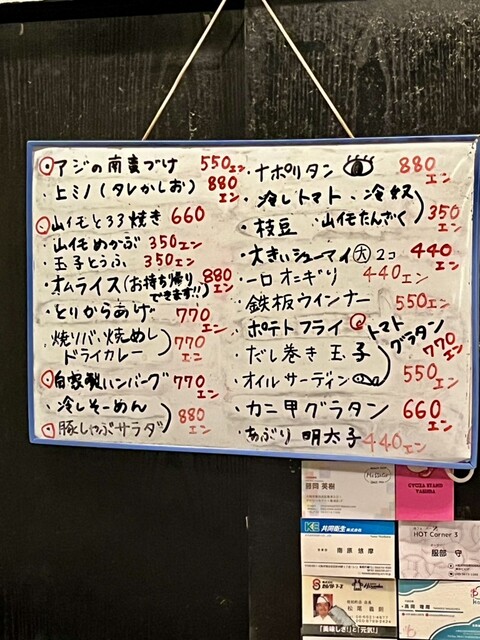 アジの南蛮づけ 550エン
上ミノ(タレかしお) 880エン
山イモとろろ焼き 660
山イモめかぶ 350エン
玉子とうふ 350エン
オムライス(お持ち帰りできます!!) 880エン
とりからあげ 770エン
焼ソバ・焼めし
ドライカレー 770エン
自家製ハンバーグ 770エン
冷しそーめん
豚しゃぶサラダ 880エン
ナポリタン 880エン
冷しトマト・冷奴
枝豆 山イモたんざく 350エン
大きいシューマイ(大)2コ 440エン
一口オニギリ 440エン
鉄板ウインナー 550エン
ポテトフライ
トマトグラタン 770エン
だし巻き玉子
オイルサーディン 550エン
カニ甲グラタン 660エン
あぶり明太子 440エン
GYOZA STAND
HOT Corner 3
服部 守
KE 共同衛生株式会社
南原 悠摩
松尾 直樹
「美味しさ」と「元気」